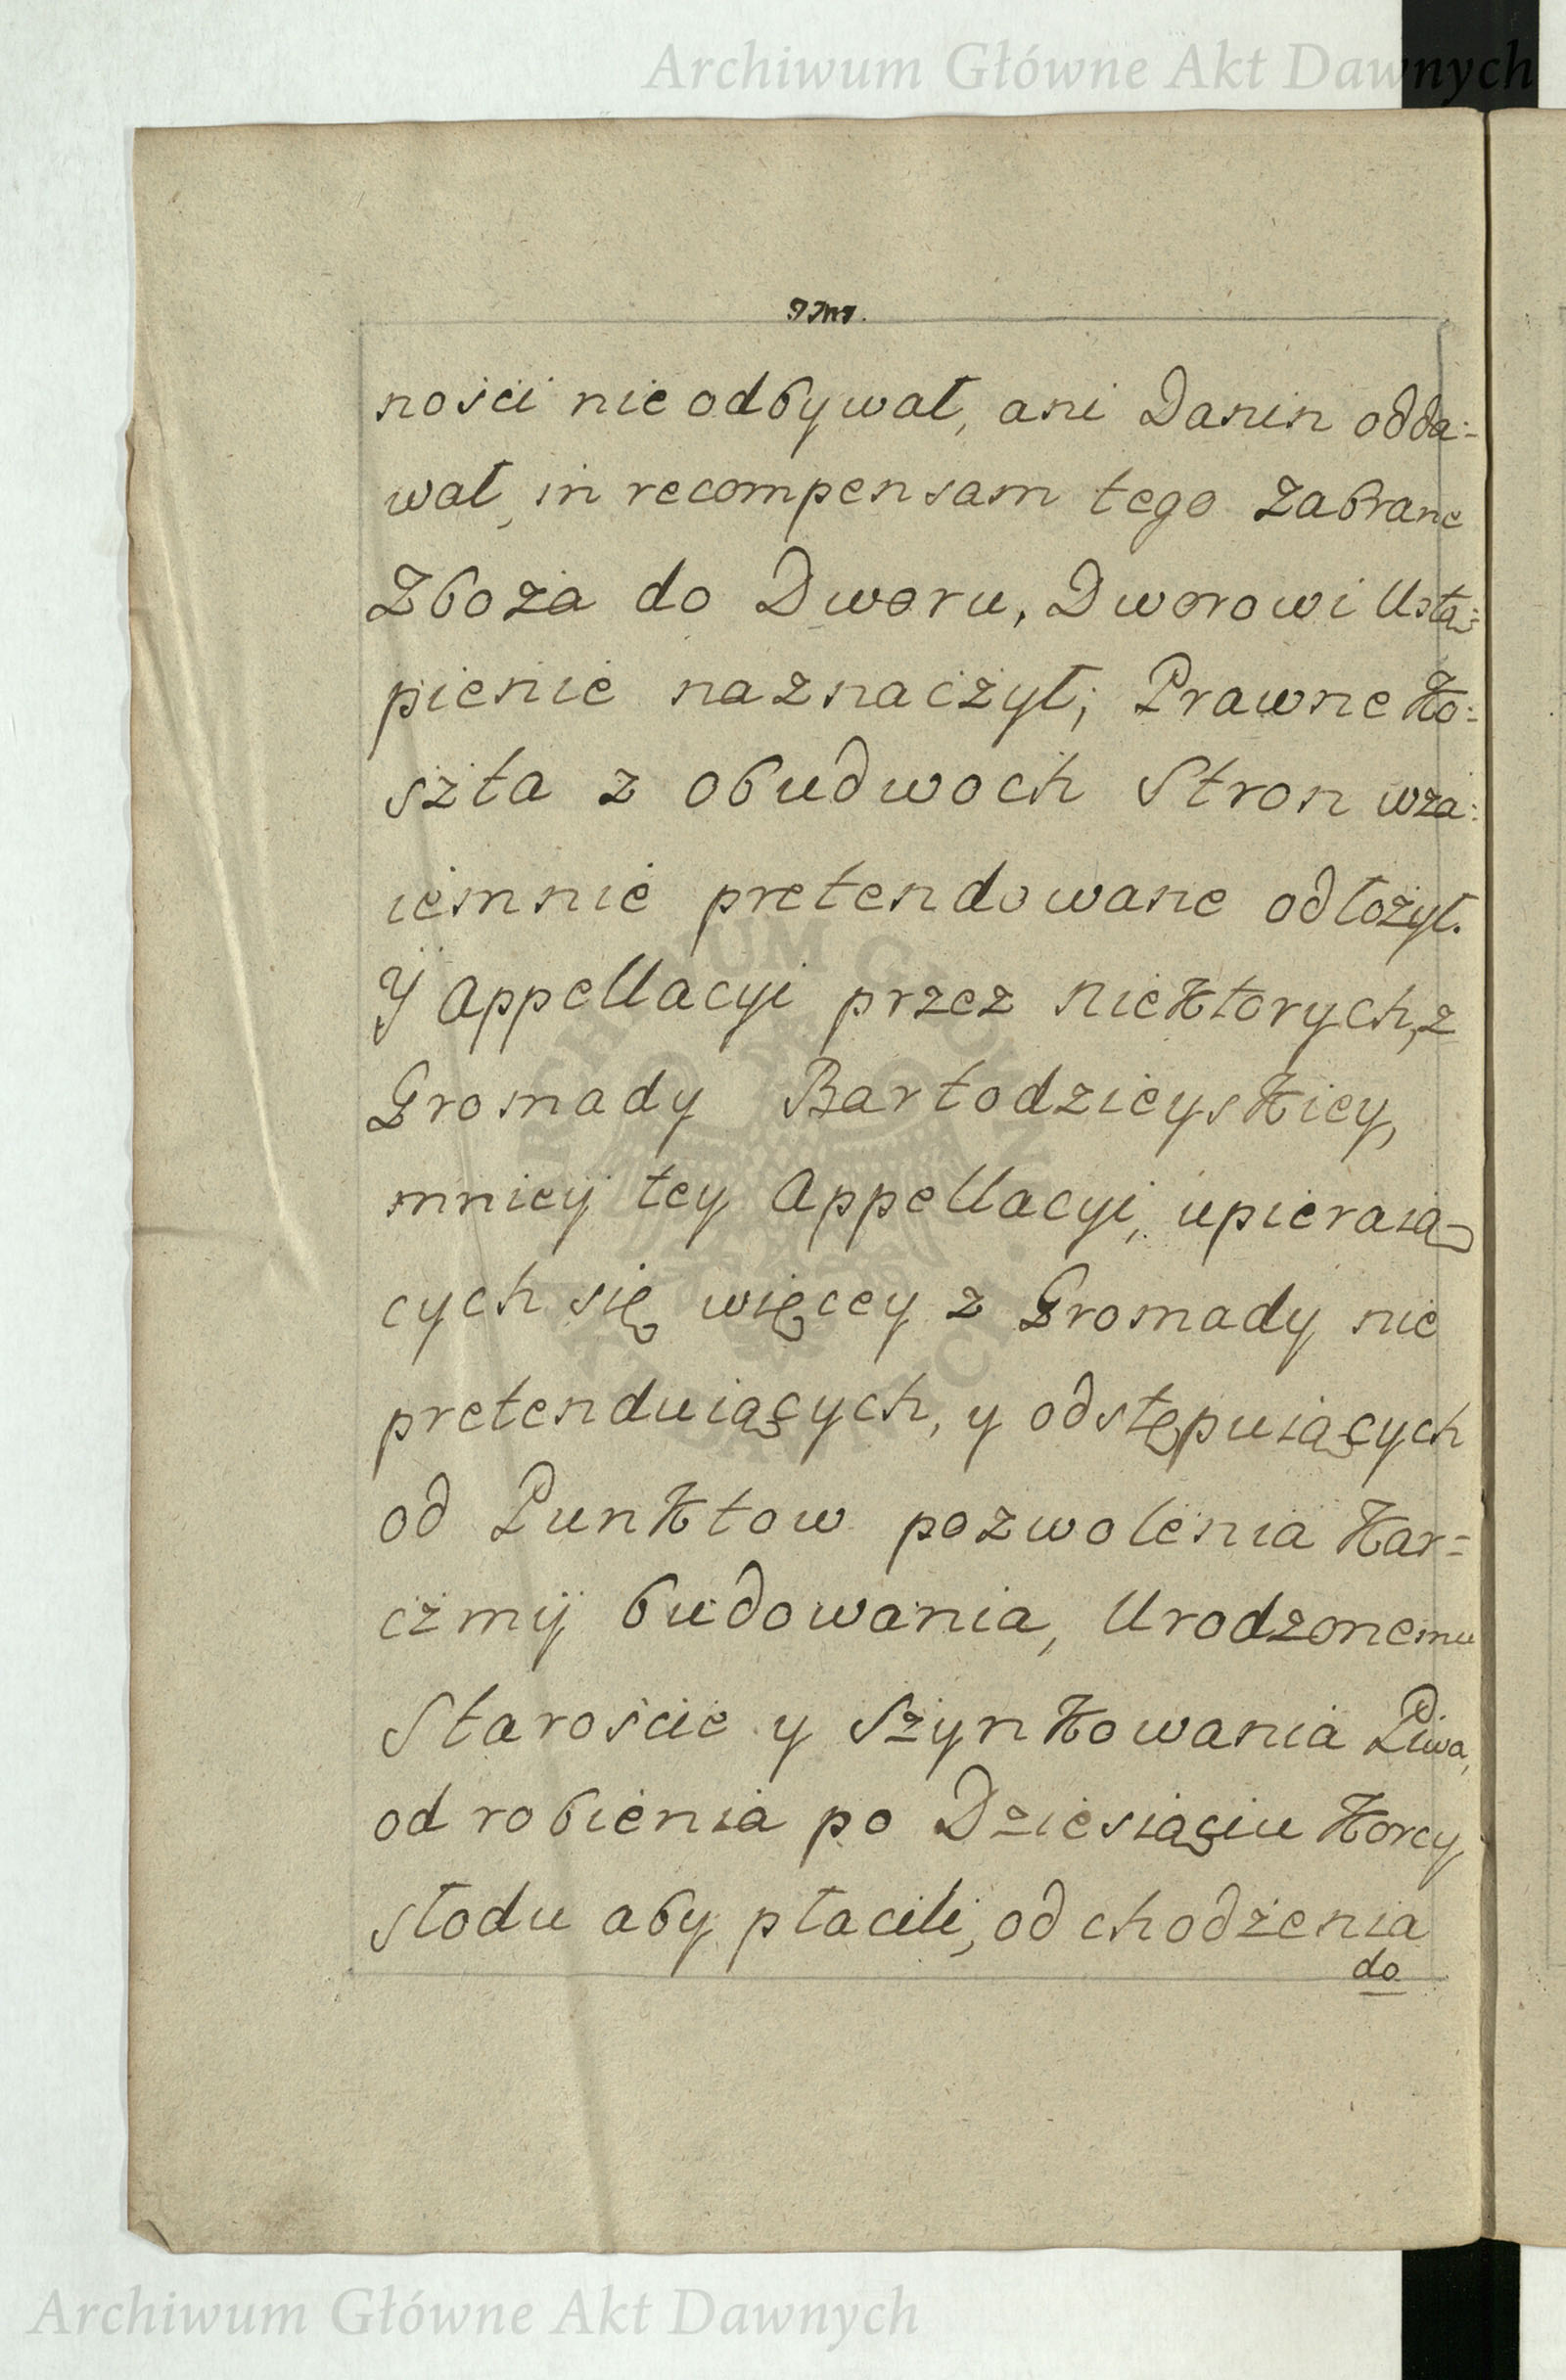 Archiwum Główne Akt Dawnych
ności nie odbywał, ani Danin odda:
wał, in recompensam tego zabrane
Zboża do Dworu, Dworowi Ustą:
pienie naznaczył; Prawne Ko:
szta z obudwoch Stron wza:
iemnie pretendowane odłożył.
Ÿ Appellacyi przez niektorych, z
Gromady Bartodzieyskiey,
mniey tey Appellacyi, upieraią
cych się więcey z Gromady nie
pretenduiących, y odstępuiących
od Punktow pozwolenia Kar=
czmÿ budowania, Urodzonemu
Staroście y Szynkowania Piwa,
od robienia po Dziesiąciu Korcy
słodu aby płacili, od chodzenia
do
Archiwum Główne Akt Dawnych